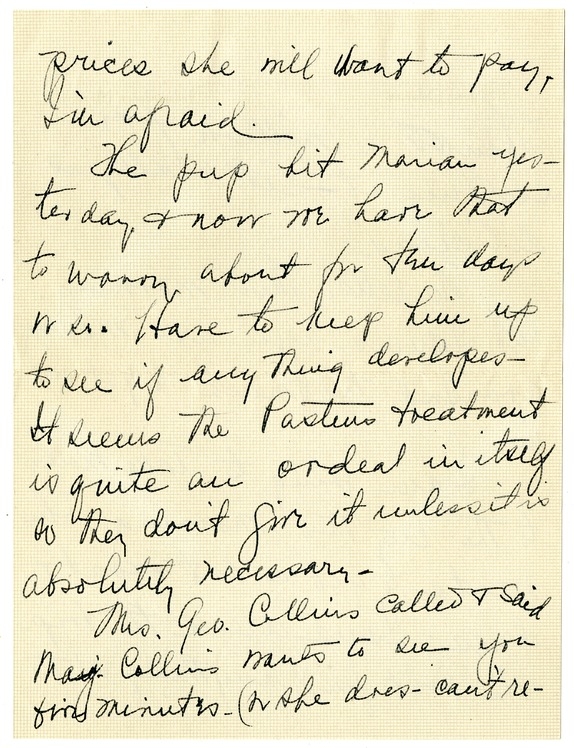 prices she will want to pay,
I'm afraid.
The pup bit Marian yes-
terday, & now we have that
to worry about for ten days
or so. Have to keep him up
to see if anything developes-
It seems the Pasteur treatment
is quite an ordeal in itself
so they don't give it unless it is
absolutely necessary-
Mrs. Geo. Collins called & said
Maj. Collins wants to see you
five minutes-(or she does- can't re-